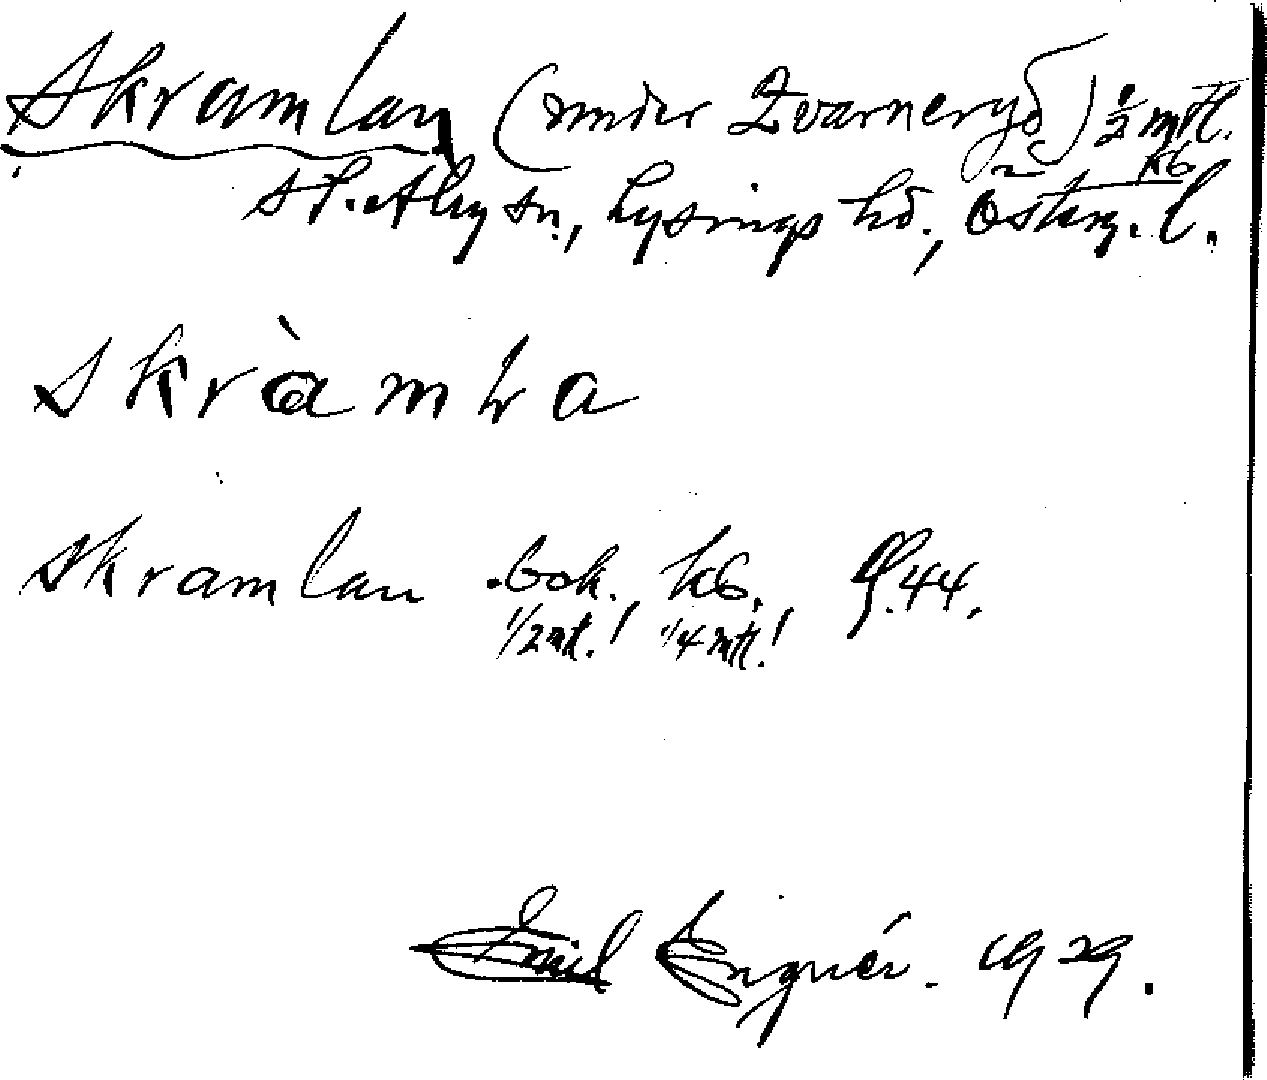 Skramlan (under Qvarneryd) 1/2 mtl.
kb
St. Åby sn., Lysings hd., Österg. l.
skràmla
Skramlan bok., kb., G. 44.
1/2 mt.! 1/4 mtl.!
Emil Engnér. 1929.